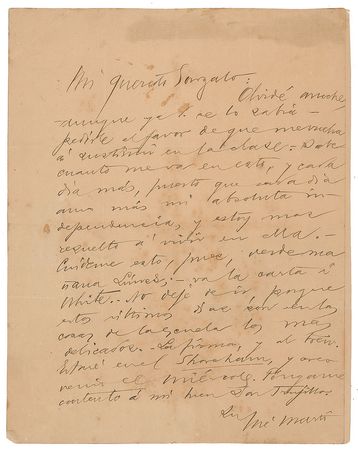 Mi querido Gonzalo:
Olvidé anoche,
aunque ya V. se lo sabía
pedirle el favor de que me vuelva
á sustituir en la clase. Sabe
cuanto me va en esto, y cada
día más, puesto que cada día
amo más mi absoluta in
dependencia, y estoy más
resuelto á vivir en ella.-
Cuídeme esto, pues, desde ma
ñana Lunes,- va la carta á
White. No deje de ir, porque
estos últimos días son en las
cosas de la escuela los más
delicados.- La firma, y al
Estaré en el y creo
venir el Miércoles. Póngame
contento á mi buen Don Trujillo.
Su José Martí